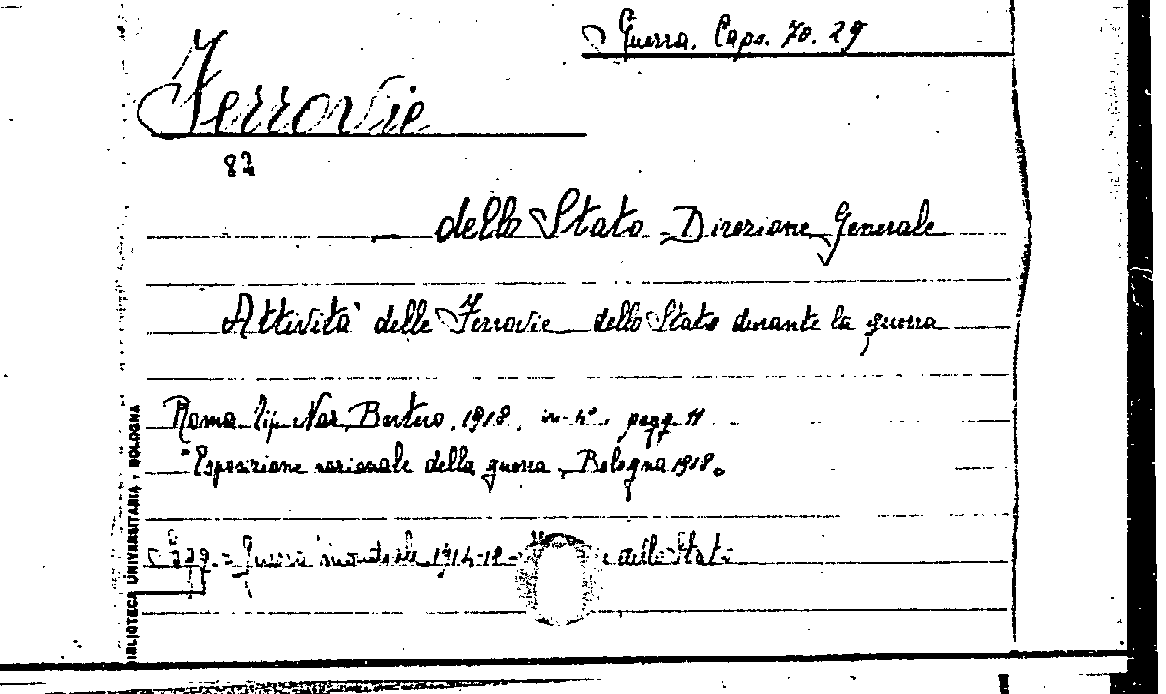 Guerra. Caps. 70. 29
Ferrovie
82
dello Stato - Direzione Generale
Attività delle Ferrovie dello Stato durante la guerra
Roma Tip. Naz. Bertero. 1918. in-4°. pagg. 11
"Esposizione nazionale della guerra. Bologna 1918.
Guerra mondiale 1914-18 - dello Stato
BIBLIOTECA UNIVERSITARIA - BOLOGNA